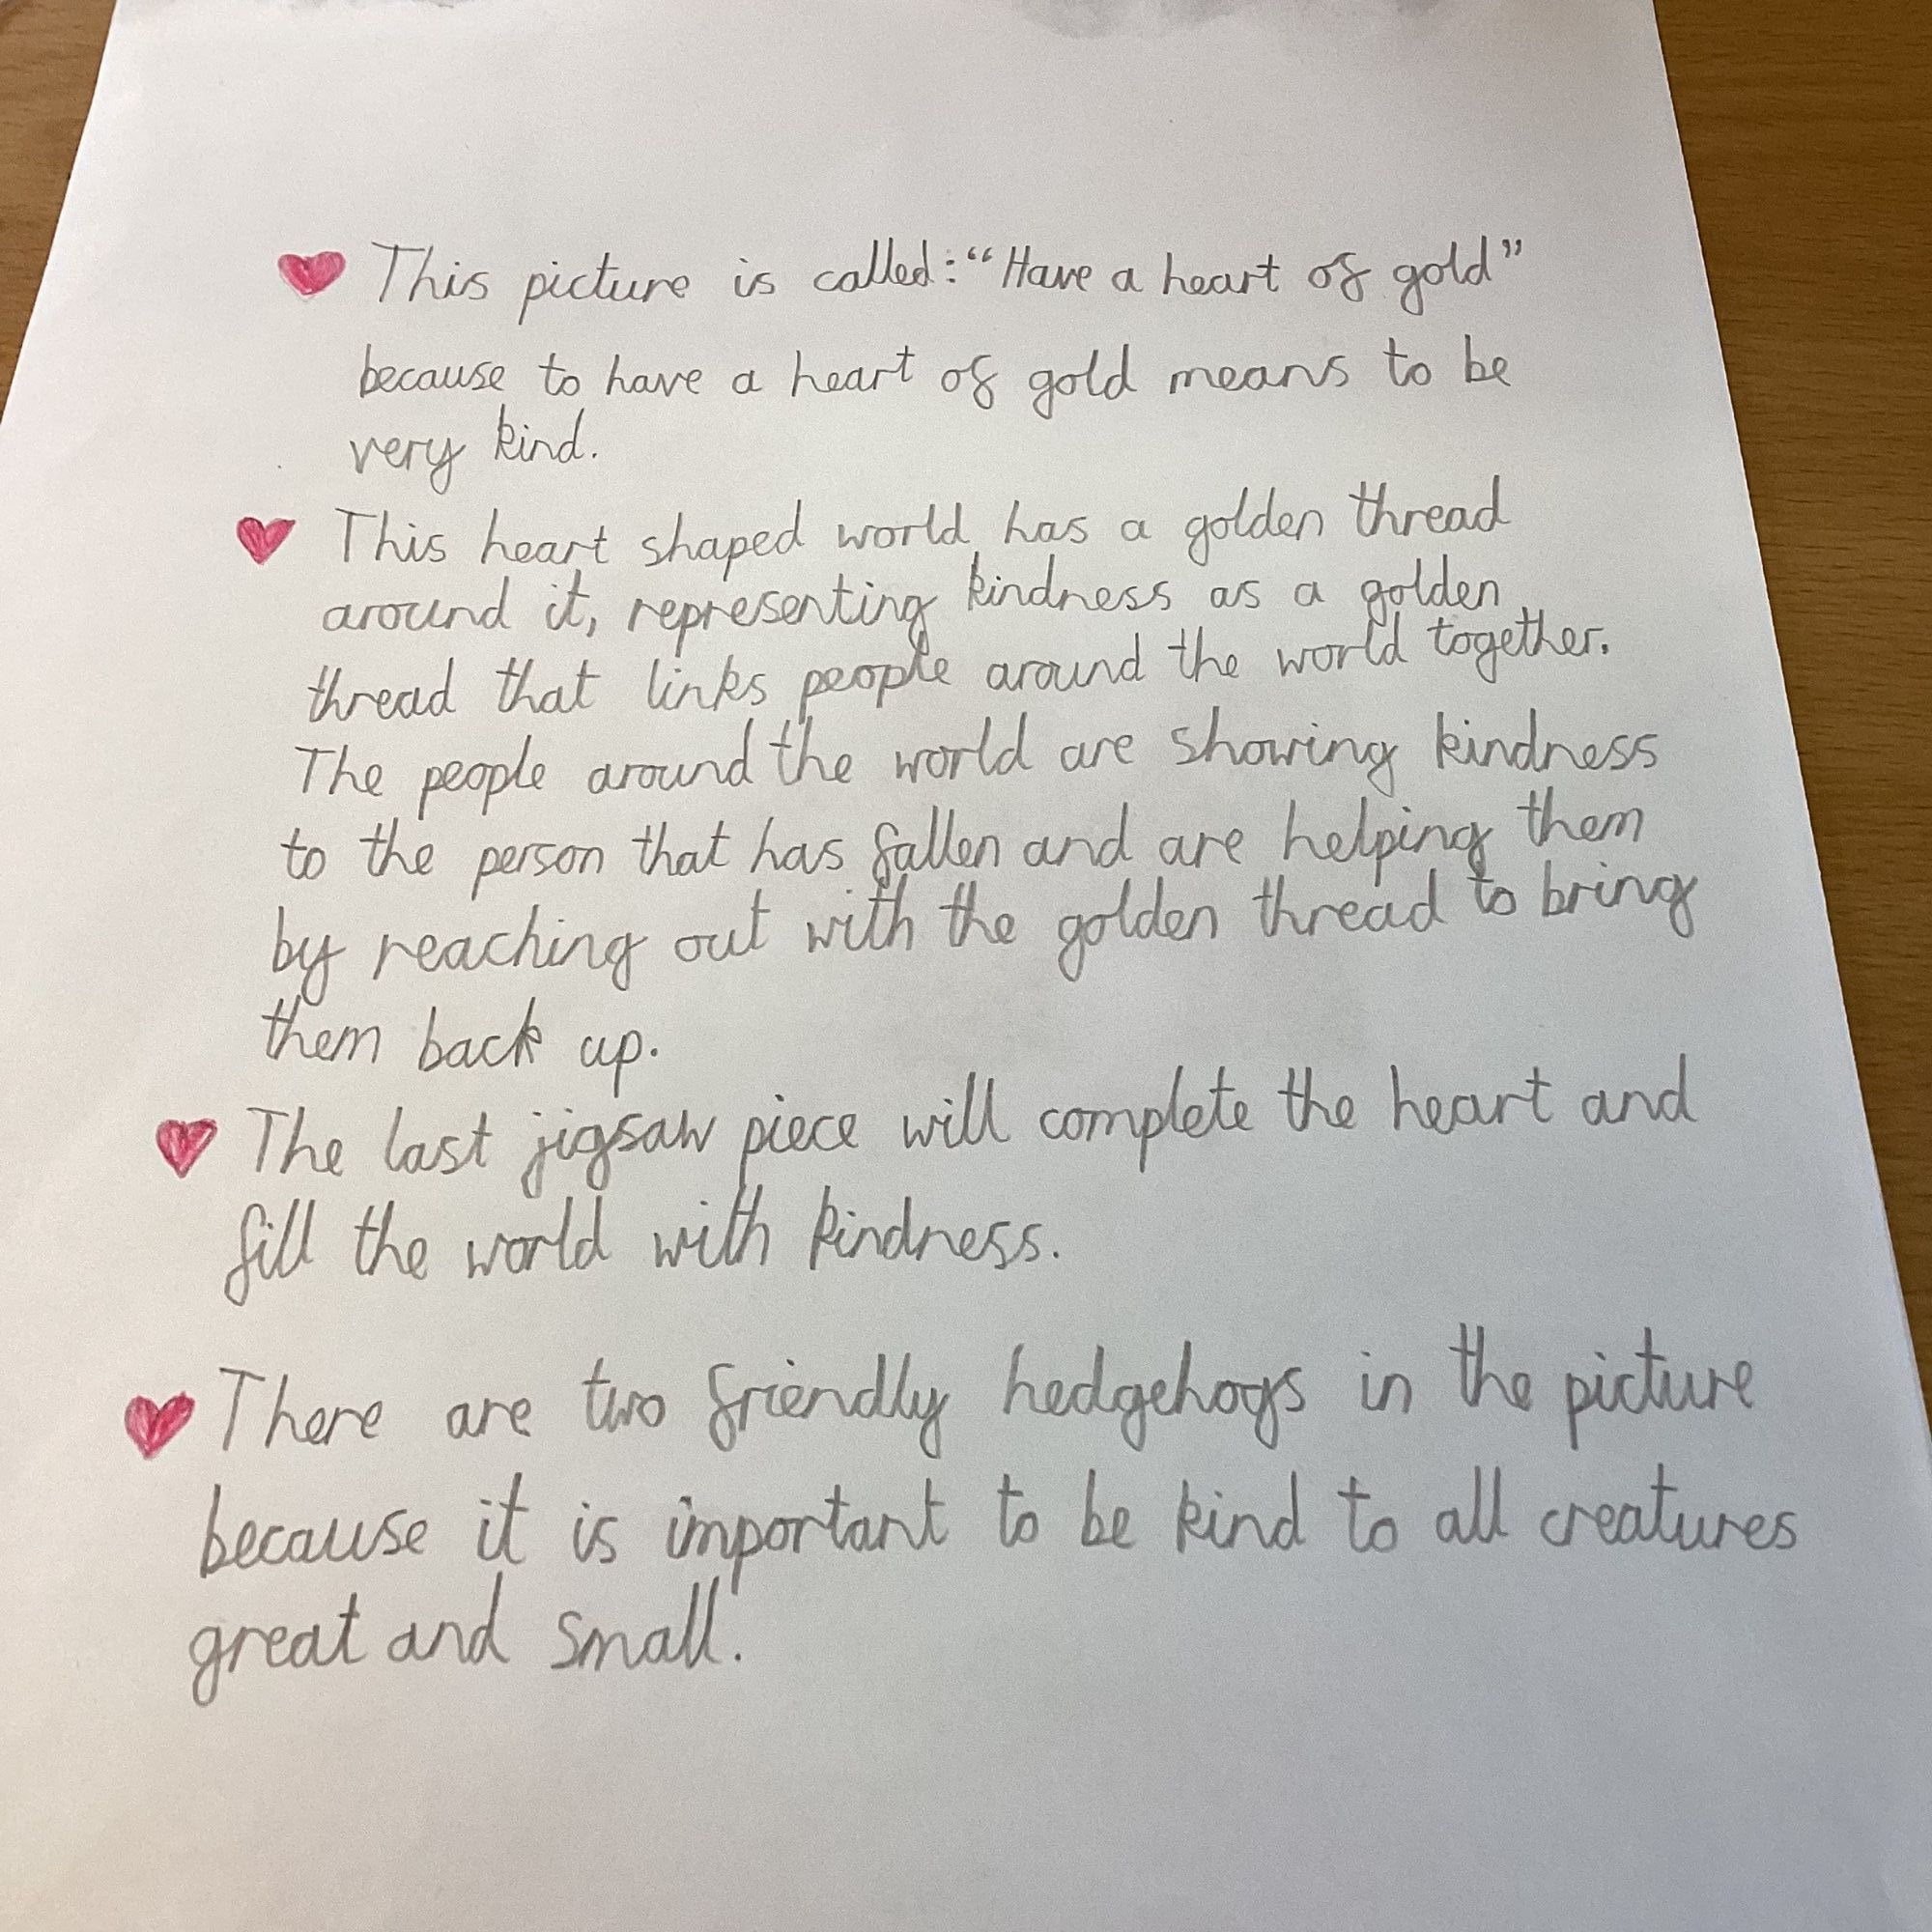 This picture is called: "Have a heart of gold"
because to have a heart of gold means to be
very kind.
This heart shaped world has a golden thread
around it, representing kindness as a golden
thread that links people around the world together.
The people around the world are showing kindness
to the person that has fallen and are helping them
by reaching out with the golden thread to bring
them back up.
The last jigsaw piece will complete the heart and
fill the world with kindness.
There are two friendly hedgehogs in the picture
because it is important to be kind to all creatures
great and small.